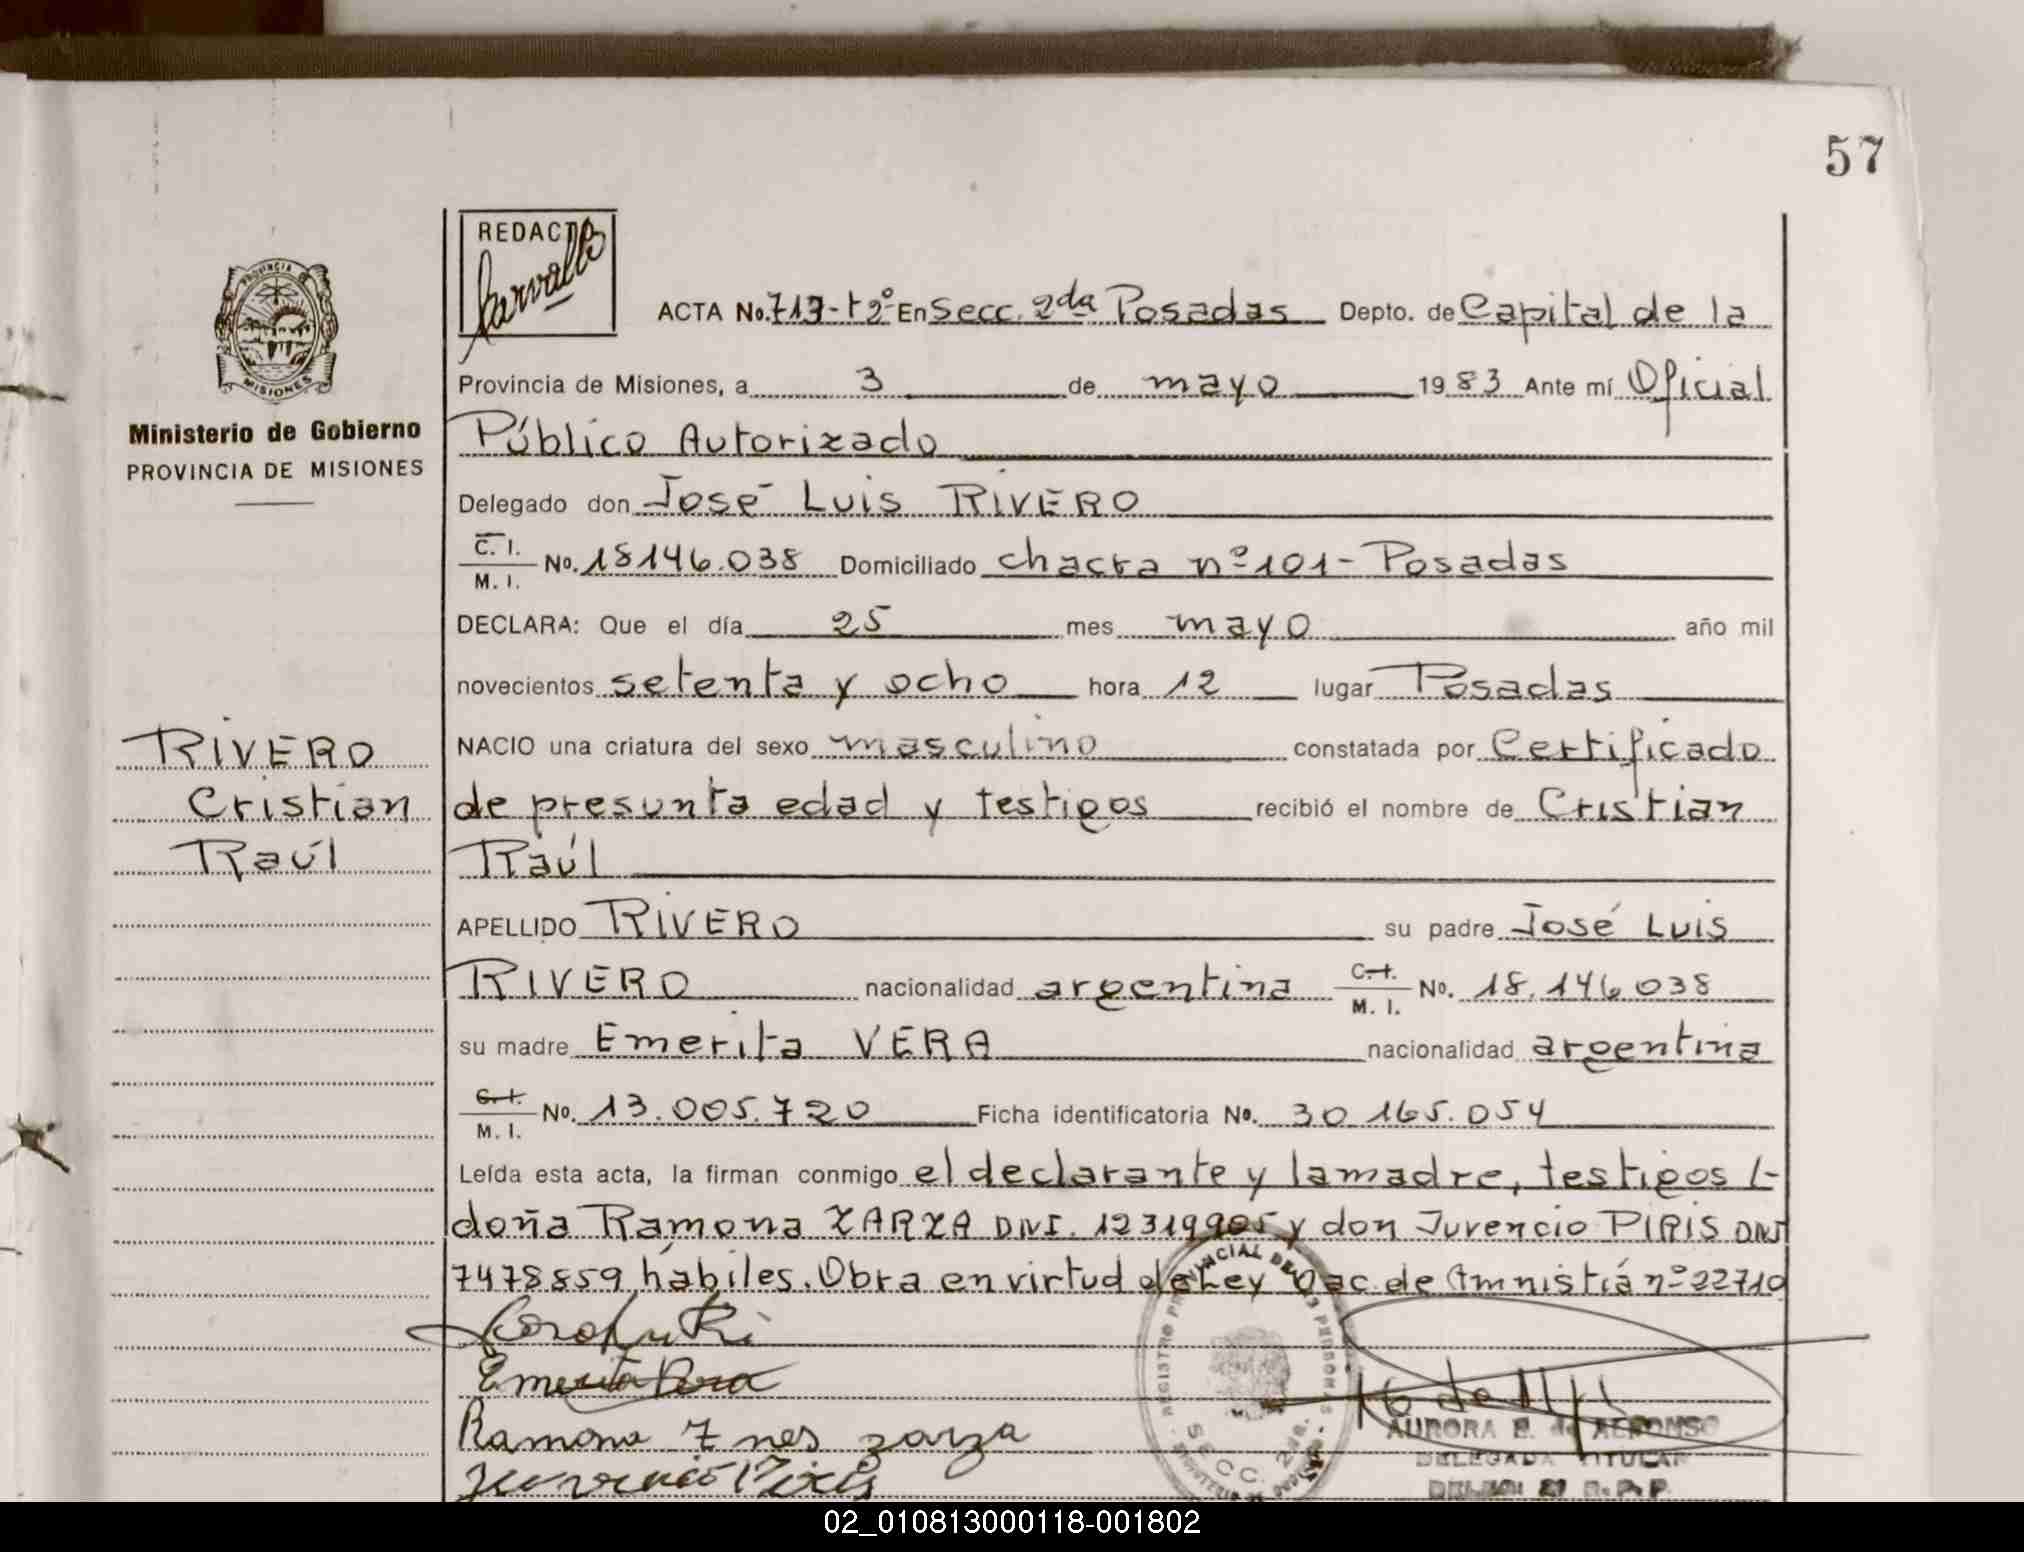 57
REDACTO
Carvallo
ACTA No. 713-t2º En Secc. 2da Posadas Depto. de Capital de la
Provincia de Misiones, a 3 de mayo 1983 Ante mí Oficial
Público Autorizado
Delegado don José Luis RIVERO
C. I. / M. I. No. 18146.038 Domiciliado chacra nº 101 - Posadas
DECLARA: Que el día 25 mes mayo año mil
novecientos setenta y ocho hora 12 lugar Posadas
NACIO una criatura del sexo masculino constatada por Certificado
de presunta edad y testigos recibió el nombre de Cristian
Raúl
APELLIDO RIVERO su padre José Luis
RIVERO nacionalidad argentina C. I. / M. I. No. 18.146038
su madre Emerita VERA nacionalidad argentina
C. I. / M. I. No. 13.005.720 Ficha identificatoria No. 30.165.054
Leída esta acta, la firman conmigo el declarante y la madre, testigos
doña Ramona ZARZA DNI. 12319905 y don Juvencio PIRIS DNI
7478859, hábiles. Obra en virtud de Ley Nac. de Amnistiá nº 22710
Emerita Vera
Ramona Ines zarza
Juvencio Piris
PROVINCIA DE
MISIONES
Ministerio de Gobierno
PROVINCIA DE MISIONES
RIVERO
Cristian
Raúl
REGISTRO PROVINCIAL DE LAS PERSONAS
SECC. 2da.
AURORA E. de ALFONSO
DELEGADA TITULAR
02_010813000118-001802